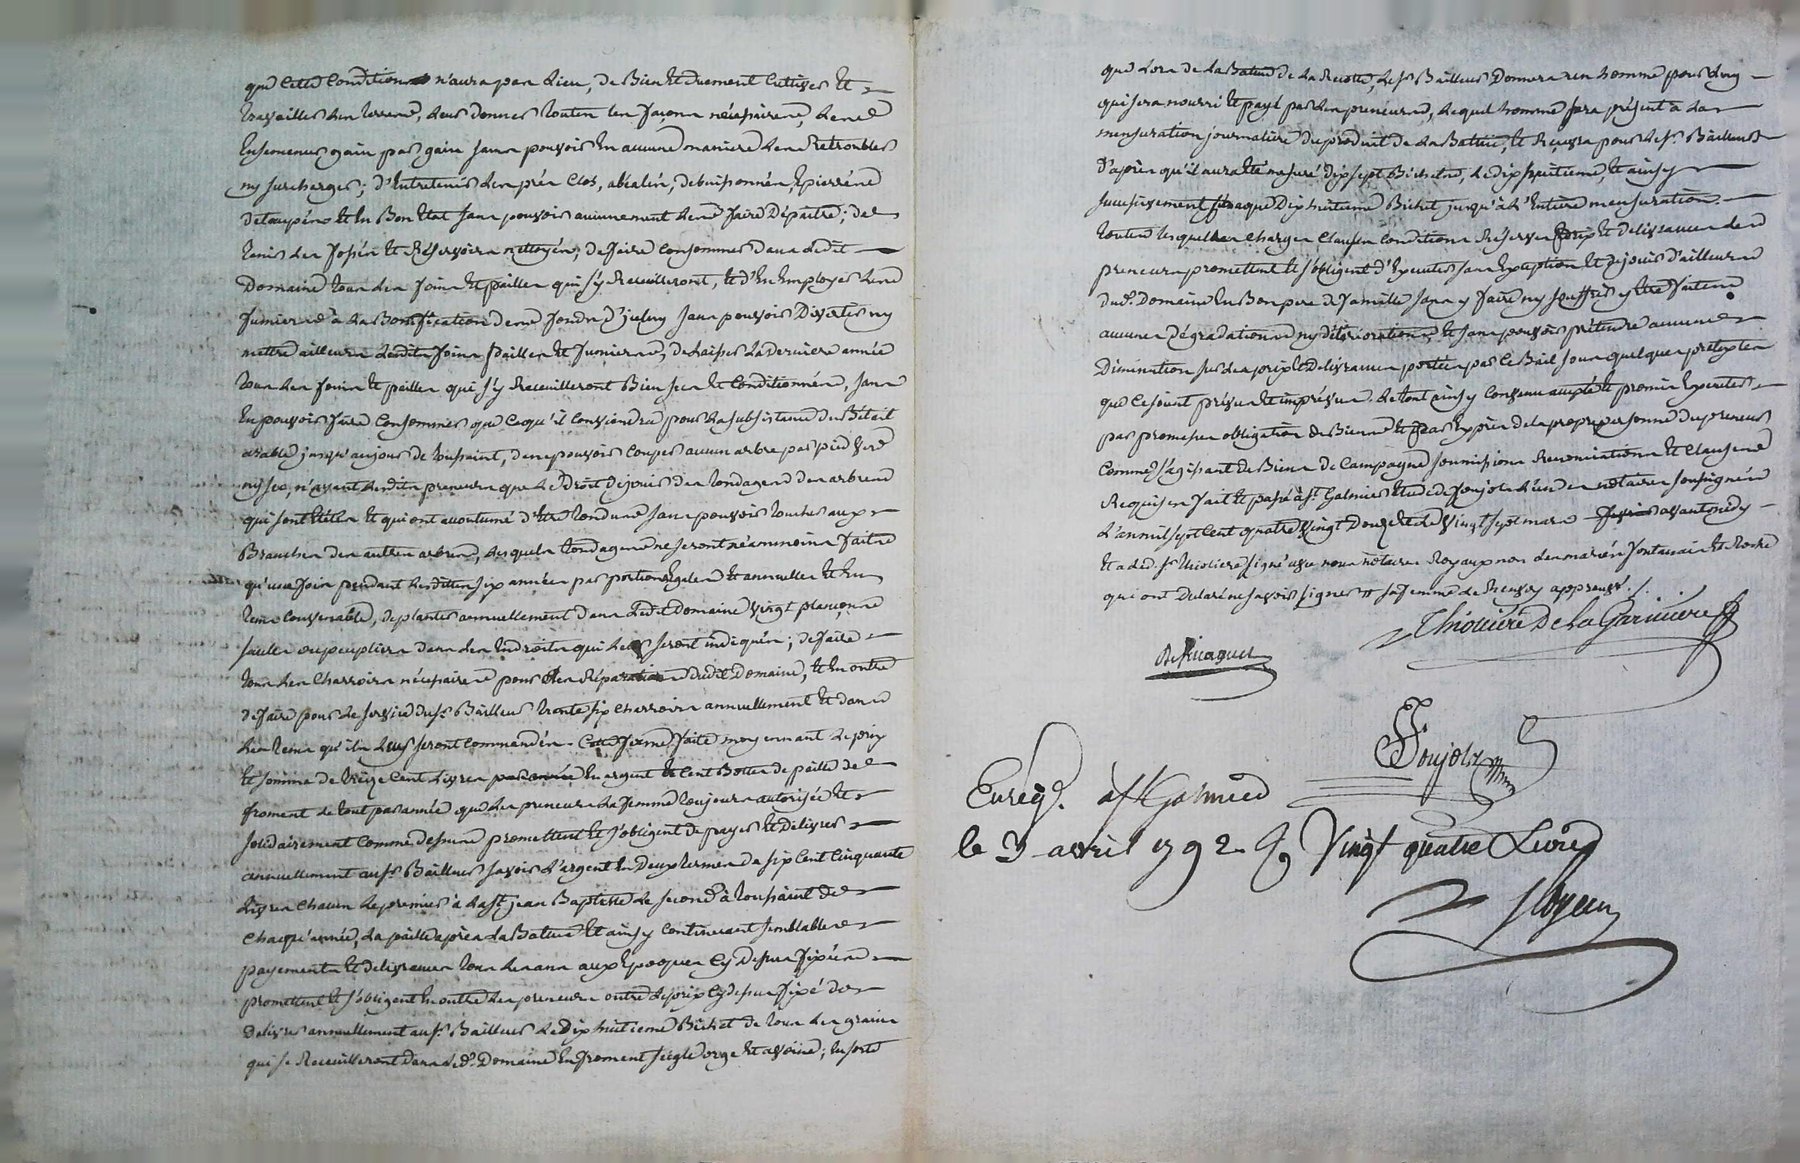 que cette condition n'aura pas lieu, de bien et duement cultiver et
travailler les terres, leur donner toutes les façons nécessaires, de ne
ensemencer gain par gain sans pouvoir en aucune maniere les retroubler
ny surcharger; d'entretenir les prés clos, abéalés, debuissonnés, épierrés
détaupés et en bon état sans pouvoir aucunement les faire dépaitre; de
tenir les fossés et réservoirs nettoyés; de faire consommer dans ledit
Domaine tous les foins et pailles qui s'y receuilleront, et d'en employer les
fumiers à la bonification des fonds d'iceluy sans pouvoir divertir ny
mettre ailleurs lesdits foins pailles et fumiers, de laisser la derniere année
tous les foins et pailles qui s'y receuilleront bien secs et conditionnés, sans
en pouvoir faire consommer que ce qu'il conviendra pour la subsistance du bétail
arable jusqu'au jour de toussaint, de ne pouvoir couper aucun arbre par pied verd
ny sec, n'ayant lesdits preneurs que le droit de jouir des tondages des arbres
qui sont étêtés et qui ont accoutumé d'être tondus sans pouvoir toucher aux
branches des autres arbres, lesquels tondages ne seront néanmoins faits
qu'une fois pendant lesdittes six années par portions égales et annuelles et en
tems convenable, de planter annuellement dans ledit Domaine vingt plançons
saules ou peupliers dans les endroits qui leur seront indiqués; de faire
tous les charrois nécessaires pour les réparations dudit Domaine, et en outre
de faire pour le service dusr. Bailleur trente six charrois annuellement et dans
les tems qu'ils leur seront commandés. Cette ferme faite moyennant le prix
et somme de treize cent livres en argent et cent bottes de paille de
froment le tout par année que les preneurs la femme toujours autorisée et
solidairement comme dessus promettent et s'obligent de payer et délivrer
annuellement ausr. Bailleur savoir l'argent en deux termes de six cent cinquante
livres chacun le premier à la st. jean Baptiste le second à toussaint de
chaque année, la paille après la Batture et ainsy continueront semblables
payements et delivrances tous les ans aux époques cy dessus fixées
promettent et s'obligent en outre les preneurs outre le prix cy dessus fixé de
delivrer annuellement ausr. Bailleur le dix huitieme Bichet de tous les grains
qui se receuilleront dans led. Domaine en froment seigle orge et avoine; en sorte
que lors de la Batture de la recolte, le sr. Bailleur donnera un homme pour
qui sera nourri et payé par les preneurs, lequel homme sera présent à la
mensuration journaliere du produit de la Batture, et recevra pour le sr. Bailleur
d'après qu'il aura été mesuré dix sept Bichets, le dix huitieme, et ainsy
successivement chaque dix huitieme Bichet jusqu'à l'entiere mensuration.
toutes lesquelles charges clauses conditions réserves prix et delivrances les
preneurs promettent et s'obligent d'executer sans exception et de jouir d'ailleurs
dud. Domaine en bon pere de famille sans y faire ny souffrir y être faites
aucunes dégradations ny déteriorations, et sans pouvoir prétendre aucune
diminution sur les prix et delivrances portées par ce Bail sous quelques prétextes
que ce soient prévus et imprévus. Le tout ainsy convenu accepté et promis executer
par promesses obligation de Biens et par exprès de la propre personne des preneurs
comme s'agissant de Biens de campagne soumissions renonciations et clauses
requises fait et passé à st. Galmier étude de Joujoly l'un des notaires soussignés
l'an mil sept cent quatre vingt douze et le vingt sept mars avant midy
et a led. sr. Thiolliere signé avec nous notaires Royaux non les mariés fontanais et Roche
qui ont declaré ne savoir signer
Thiolliere De La Garinière
Joujoly
Enreg. à st Galmier
le 3 avril 1792 vingt quatre Livres